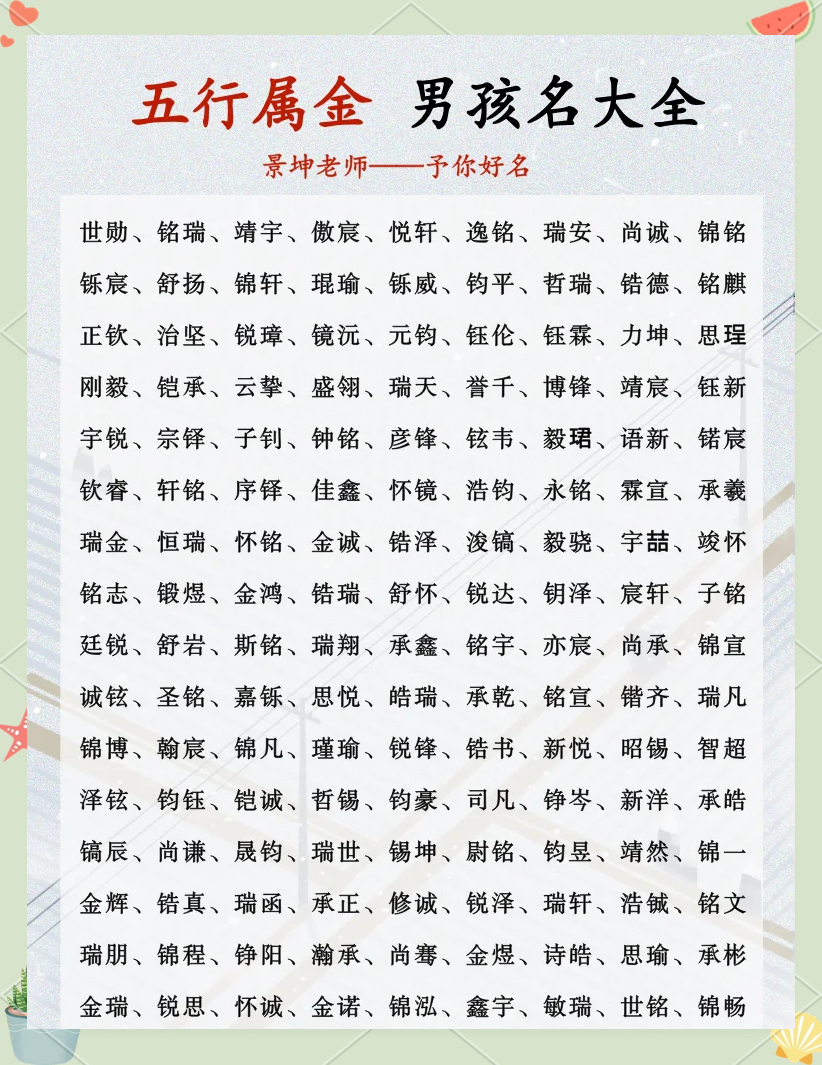 五行属金 男孩名大全
景坤老师——予你好名
世勋、铭瑞、靖宇、傲宸、悦轩、逸铭、瑞安、尚诚、锦铭
铄宸、舒扬、锦轩、琨瑜、铄威、钧平、哲瑞、锆德、铭麒
正钦、治坚、锐璋、镜沅、元钧、钰伦、钰霖、力坤、思珵
刚毅、铠承、云挚、盛翎、瑞天、誉千、博锋、靖宸、钰新
宇锐、宗铎、子钊、钟铭、彦锋、铉韦、毅珺、语新、锘宸
钦睿、轩铭、序铎、佳鑫、怀镜、浩钧、永铭、霖宣、承羲
瑞金、恒瑞、怀铭、金诚、锆泽、浚镐、毅骁、宇喆、竣怀
铭志、锻煜、金鸿、锆瑞、舒怀、锐达、钥泽、宸轩、子铭
廷锐、舒岩、斯铭、瑞翔、承鑫、铭宇、亦宸、尚承、锦宣
诚铉、圣铭、嘉铄、思悦、皓瑞、承乾、铭宣、锴齐、瑞凡
锦博、翰宸、锦凡、瑾瑜、锐锋、锆书、新悦、昭锡、智超
泽铉、钧钰、铠诚、哲锡、钧豪、司凡、铮岑、新洋、承皓
镐辰、尚谦、晟钧、瑞世、锡坤、尉铭、钧昱、靖然、锦一
金辉、锆真、瑞函、承正、修诚、锐泽、瑞轩、浩铖、铭文
瑞朋、锦程、铮阳、瀚承、尚骞、金煜、诗皓、思瑜、承彬
金瑞、锐思、怀诚、金诺、锦泓、鑫宇、敏瑞、世铭、锦畅